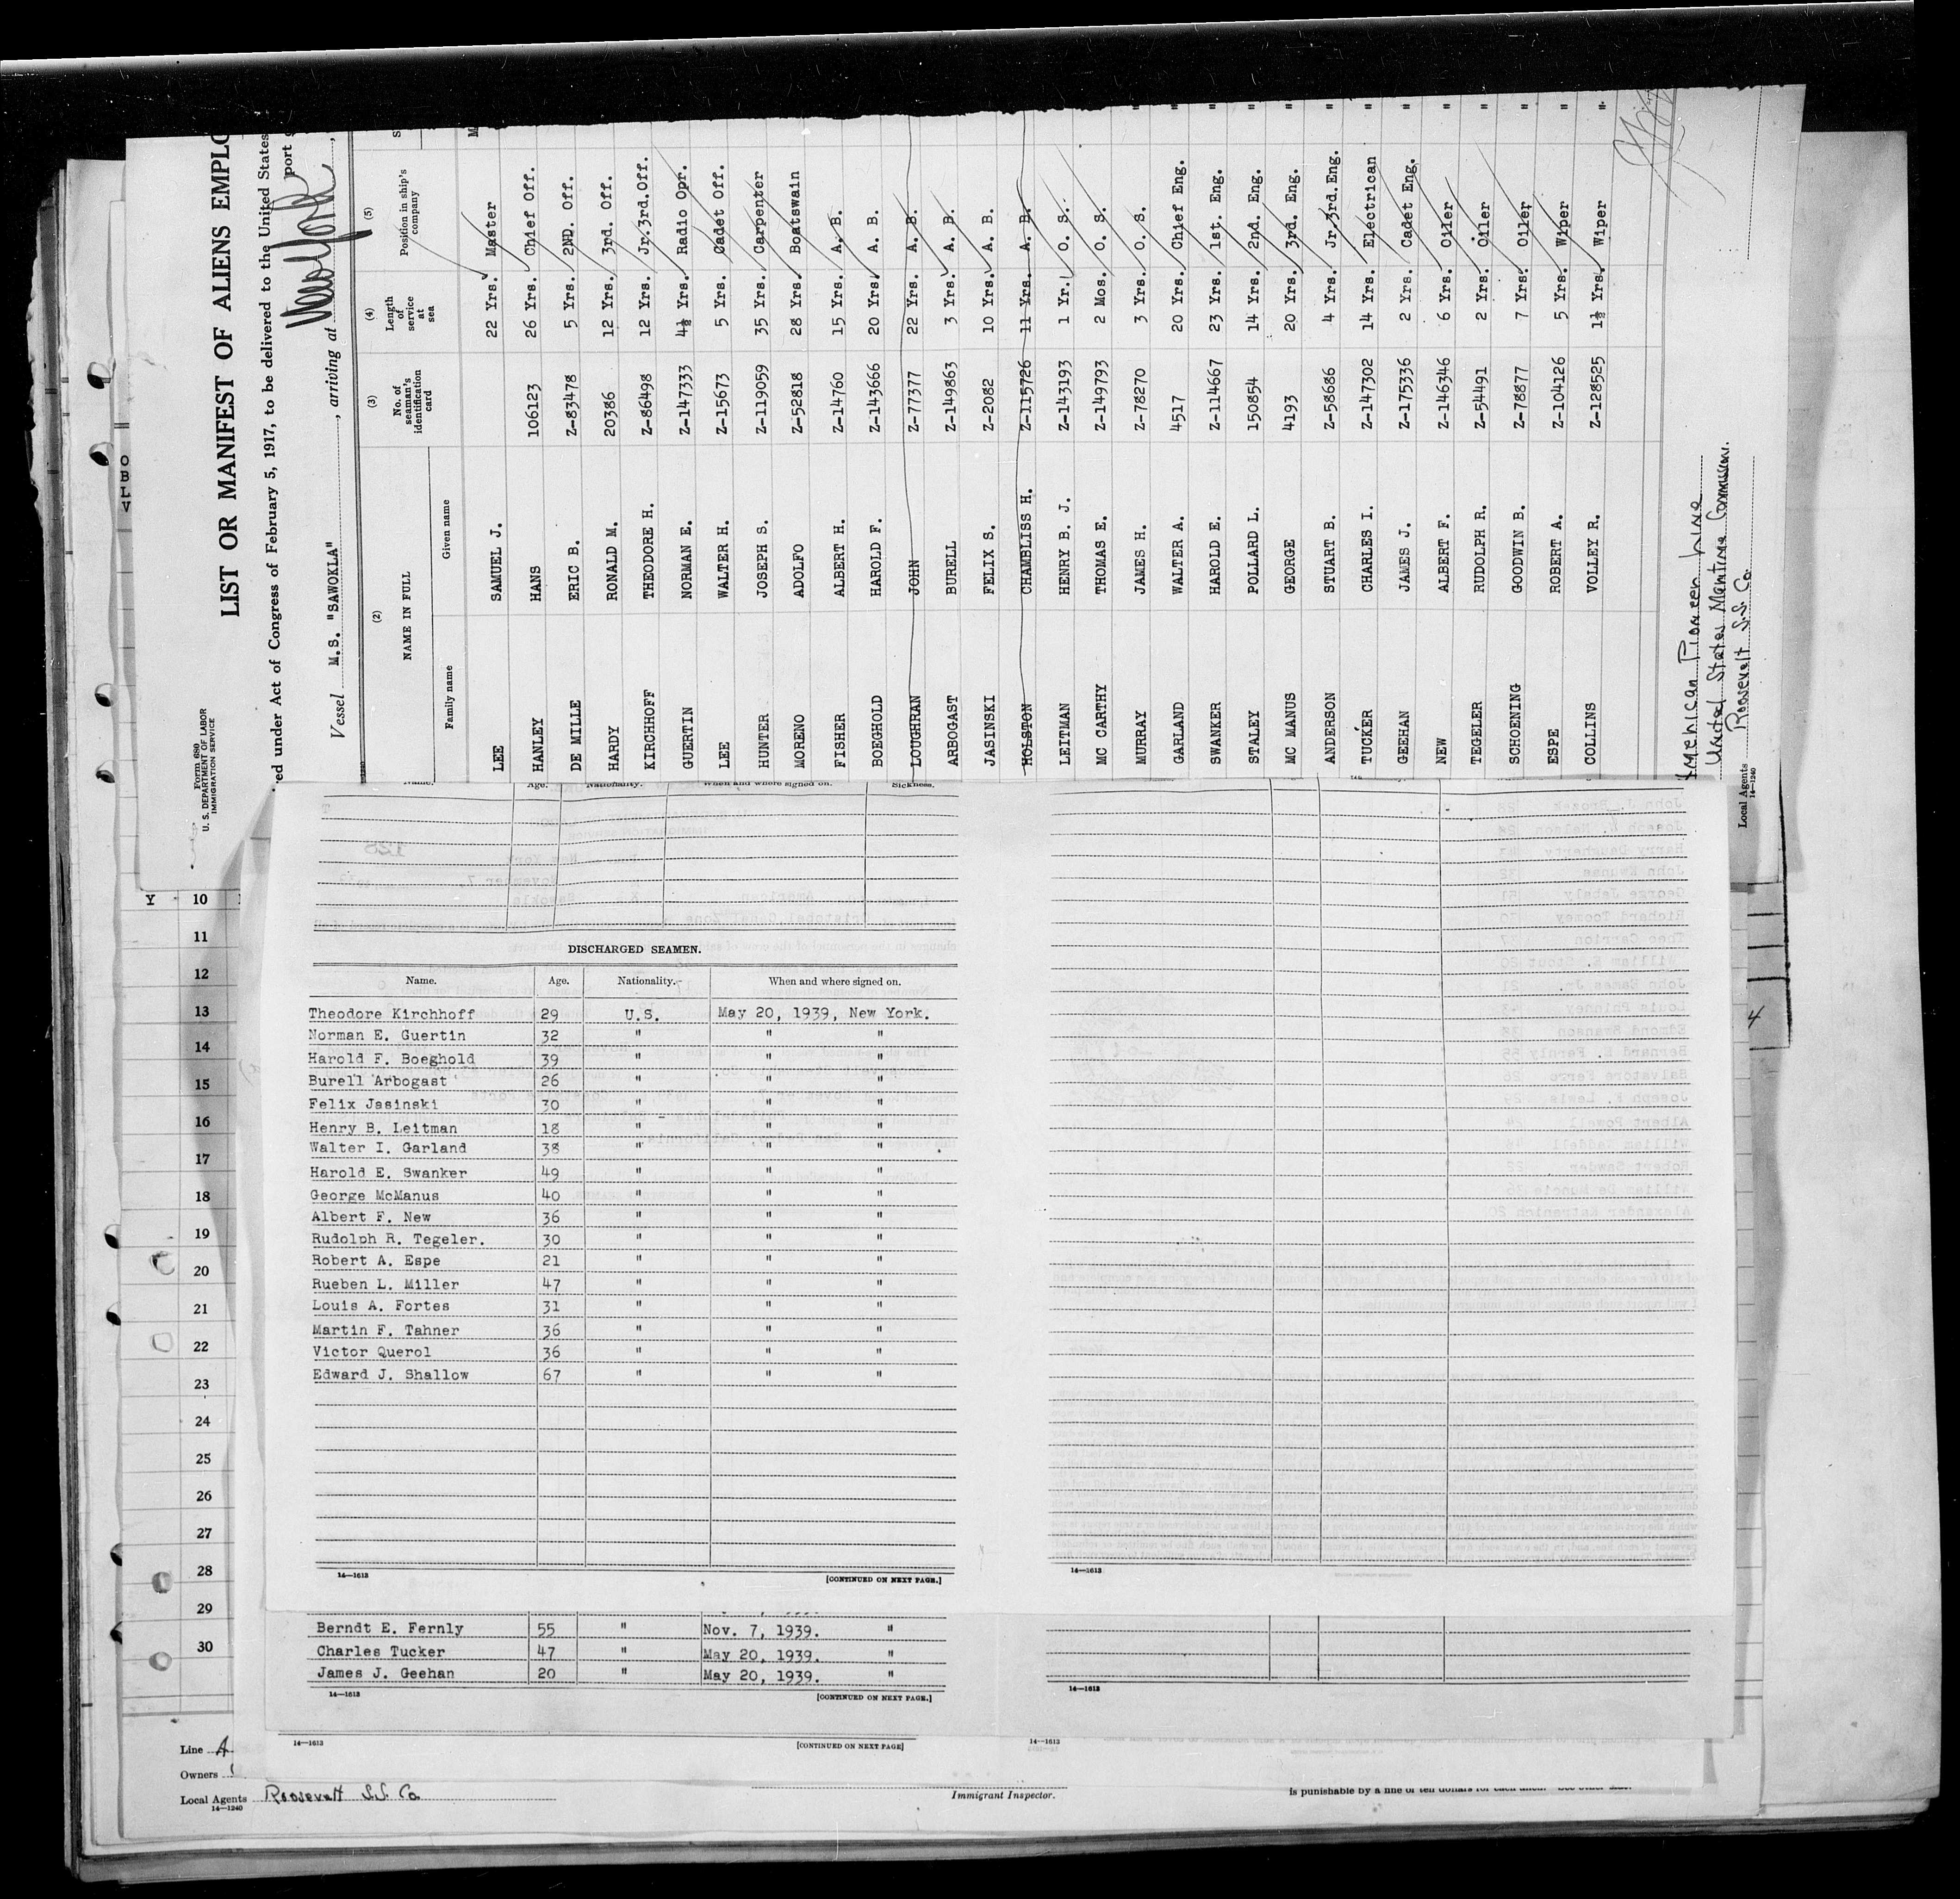 Form 680
U. S. DEPARTMENT OF LABOR
IMMIGRATION SERVICE
LIST OR MANIFEST OF ALIENS EMPLO
ed under Act of Congress of February 5, 1917, to be delivered to the United States
port
Vessel M.S. "SAWOKLA", arriving at New York,
(2) (3) (4) (5)
NAME IN FULL No. of seaman's identification card Length of service at sea Position in ship's company S
Family name Given name
LEE SAMUEL J. 22 Yrs. Master M
HANLEY HANS 106123 26 Yrs. Chief Off.
DE MILLE ERIC B. Z-83478 5 Yrs. 2ND. Off.
HARDY RONALD M. 20386 12 Yrs. 3rd. Off.
KIRCHHOFF THEODORE H. Z-86498 12 Yrs. Jr.3rd.Off.
GUERTIN NORMAN E. Z-147333 4½ Yrs. Radio Opr.
LEE WALTER H. Z-15673 5 Yrs. Cadet Off.
HUNTER JOSEPH S. Z-119059 35 Yrs. Carpenter
MORENO ADOLFO Z-52818 28 Yrs. Boatswain
FISHER ALBERT H. Z-14760 15 Yrs. A. B.
BOEGHOLD HAROLD F. Z-143666 20 Yrs. A. B.
LOUGHRAN JOHN Z-77377 22 Yrs. A. B.
ARBOGAST BURELL Z-149863 3 Yrs. A. B.
JASINSKI FELIX S. Z-2082 10 Yrs. A. B.
HOLSTON CHAMBLISS H. Z-115726 11 Yrs. A. B.
LEITMAN HENRY B. J. Z-143193 1 Yr. O. S.
MC CARTHY THOMAS E. Z-149793 2 Mos. O. S.
MURRAY JAMES H. Z-78270 3 Yrs. O. S. "
GARLAND WALTER A. 4517 20 Yrs. Chief Eng. "
SWANKER HAROLD E. Z-114667 23 Yrs. 1st. Eng. "
STALEY POLLARD L. 150854 14 Yrs. 2nd. Eng. "
MC MANUS GEORGE 4193 20 Yrs. 3rd. Eng. "
ANDERSON STUART B. Z-58686 4 Yrs. Jr.3rd.Eng. "
TUCKER CHARLES I. Z-147302 14 Yrs. Electrican "
GEEHAN JAMES J. Z-175336 2 Yrs. Cadet Eng. "
NEW ALBERT F. Z-146346 6 Yrs. Oiler "
TEGELER RUDOLPH R. Z-54491 2 Yrs. Oiler "
SCHOENING GOODWIN B. Z-78877 7 Yrs. Oiler "
ESPE ROBERT A. Z-104126 5 Yrs. Wiper "
COLLINS VOLLEY R. Z-128525 1½ Yrs. Wiper "
American Pioneer Line
United States Maritime Commission.
Local Agents Roosevelt S.S. Co.
14—1240
O
B
L
V
Name. Age. Nationality. When and where signed on. Sickness.
DISCHARGED SEAMEN.
Name. Age. Nationality. When and where signed on.
Theodore Kirchhoff 29 U.S. May 20, 1939, New York.
Norman E. Guertin 32 " " "
Harold F. Boeghold 39 " " "
Burell Arbogast 26 " " "
Felix Jasinski 30 " " "
Henry B. Leitman 18 " " "
Walter I. Garland 38 " " "
Harold E. Swanker 49 " " "
George McManus 40 " " "
Albert F. New 36 " " "
Rudolph R. Tegeler. 30 " " "
Robert A. Espe 21 " " "
Rueben L. Miller 47 " " "
Louis A. Fortes 31 " " "
Martin F. Tahner 36 " " "
Victor Querol 36 " " "
Edward J. Shallow 67 " " "
14—1613 [CONTINUED ON NEXT PAGE.] 14—1613
Berndt E. Fernly 55 " Nov. 7, 1939. "
Charles Tucker 47 " May 20, 1939. "
James J. Geehan 20 " May 20, 1939. "
14—1613 [CONTINUED ON NEXT PAGE.] 14—1613
14—1613 [CONTINUED ON NEXT PAGE] 14—1613
Y 10
11
12
13
14
15
16
17
18
19
20
21
22
23
24
25
26
27
28
29
30
4
Line A
Owners
Local Agents Roosevelt S.S. Co
14—1240
Immigrant Inspector.
is punishable by a fine of ten dollars for each alien.